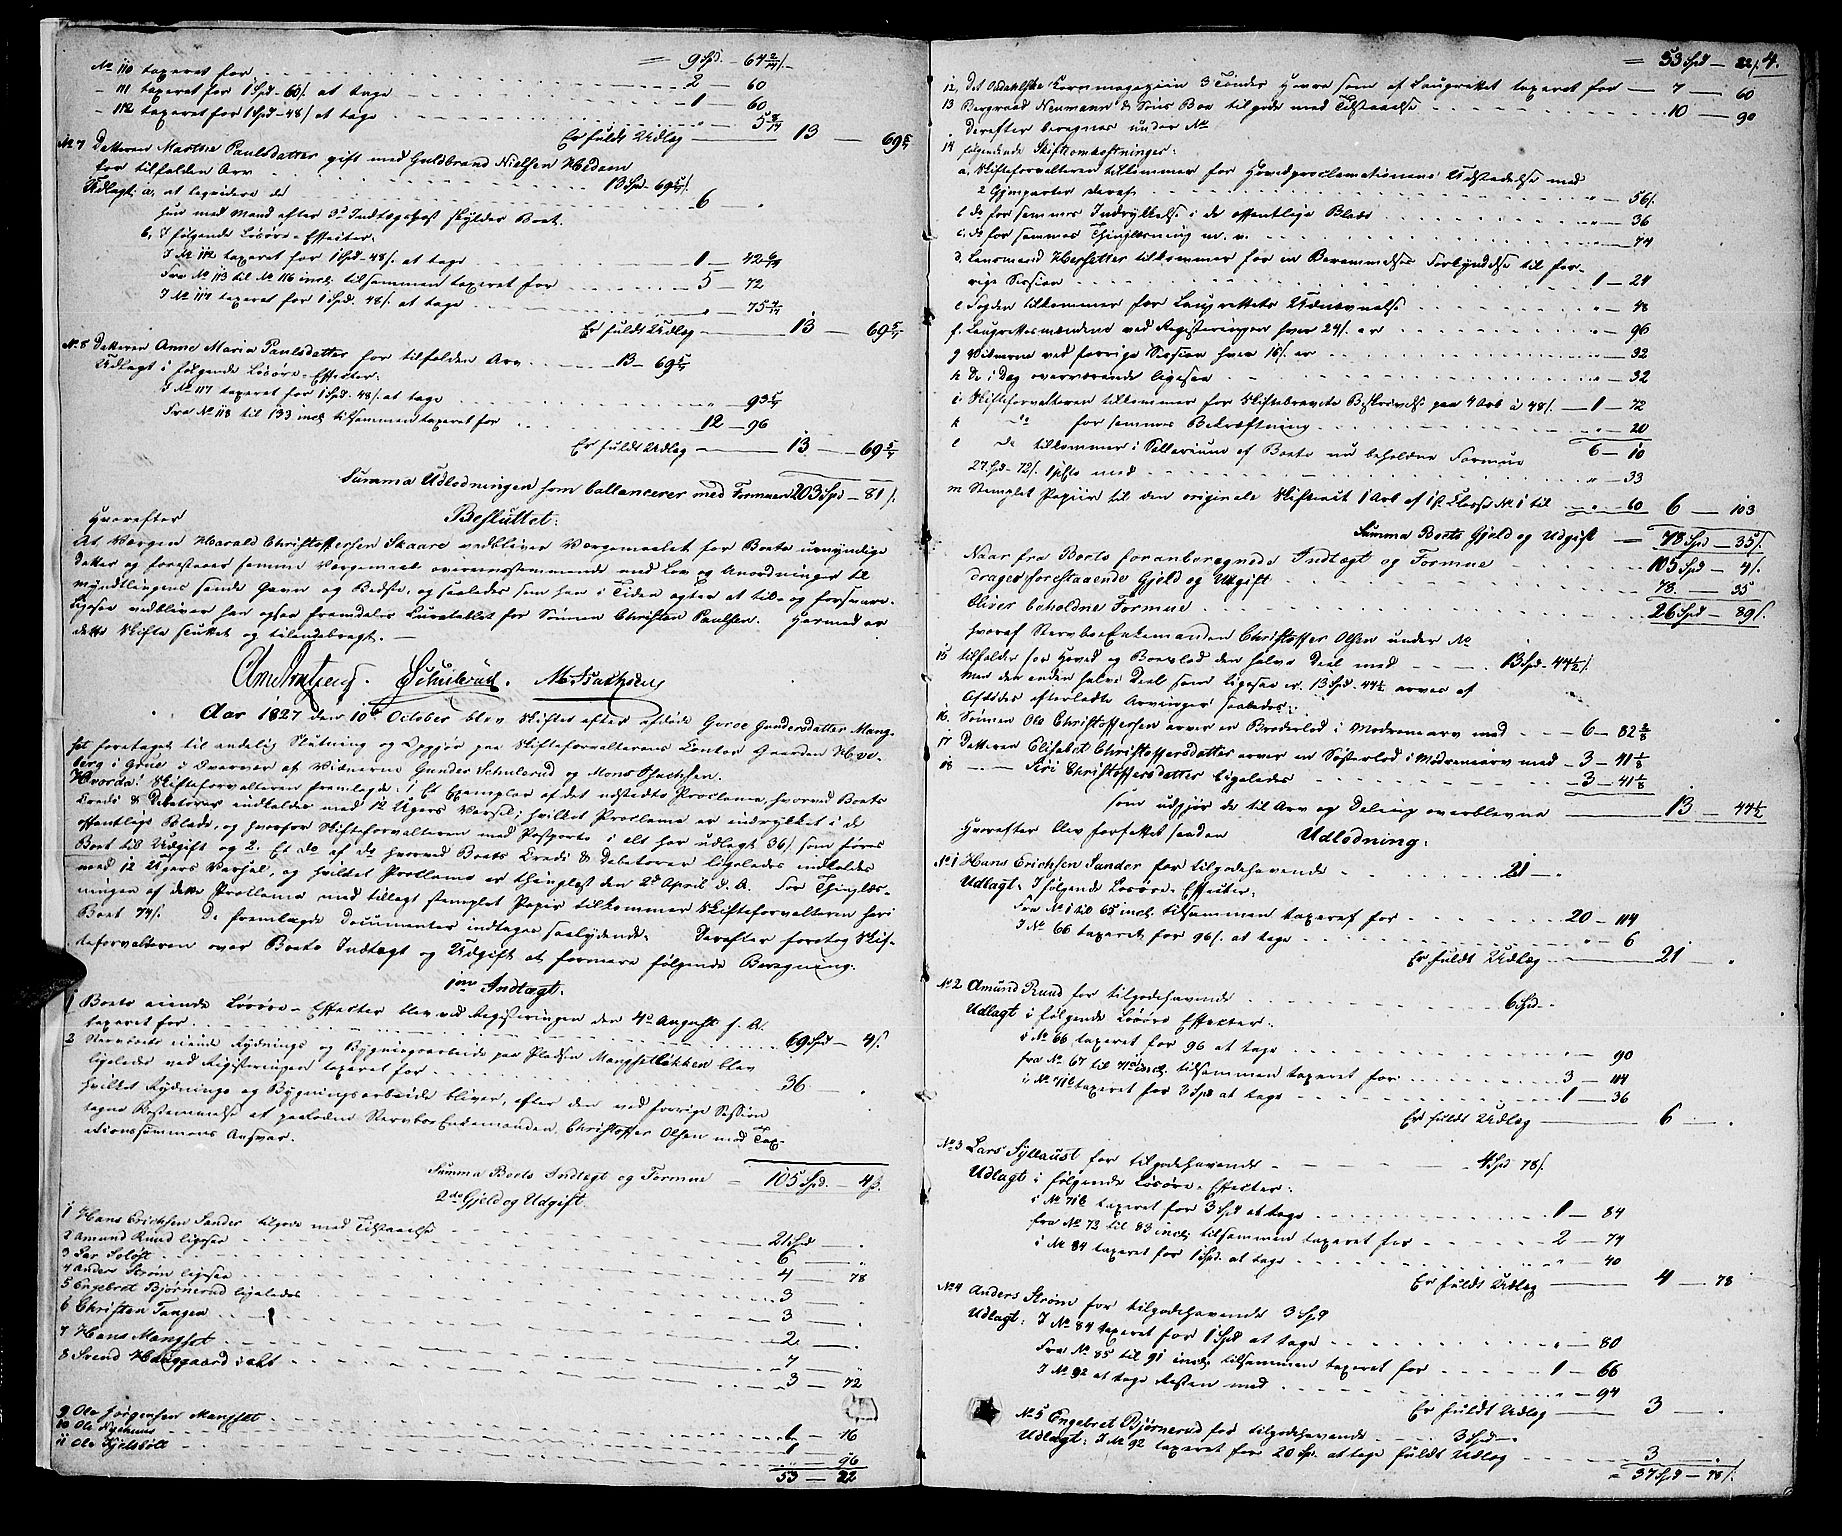 = 9 Spd. – 64 2/7 ſ. –
No 110 taxeret for 2 – 60
- 111 taxeret for 1 Spd – 60 ſ. at tage 1 – 60
- 112 taxeret for 1 Spd – 48 ſ at tage " – 5 3/7
Er fuldt Udlæg — 13 — 69 5/7
No 7 Datteren Marthe Paulsdatter gift med Guldbrand Nielsen Hedem
for tilfalden Arv 13 Spd – 69 5/7 ſ.
Udlagt: a, at liqvidere de 6 – "
hun med Mand efter 3die Indtægtspost skylder Boet.
b, I følgende Løsøre-Effecter:
I No 112 taxeret for 1 Spd – 48 ſ. at tage 1 – 42 6/7
Fra No 113 til No 116 incl. tilsammen taxeret for 5 – 72
I No 117 taxeret for 1 Spd. 48 ſ. at tage " – 75 6/7
Er fuldt Udlæg — 13 — 69 5/7
No 8 Datteren Anne Maria Paulsdatter for tilfalden Arv 13 – 69 5/7
Udlagt i følgende Løsøre-Effecter:
I No 117 taxeret for 1 Spd. 48 ſ. at tage " – 93 5/7
Fra No 118 til 133 incl. tilsammen taxeret for 12 – 96
Er fuldt Udlæg — 13 — 69 5/7
Summa Udlodningen som ballancerer med Formuen 203 Spd – 81 ſ.
Hvorefter Besluttet:
At Værgen Harald Christoffersen Skaare vedbliver Værgemaalet for Boets umyndige
Datter og forestaaer samme Værgemaal overeensstemmende med Lov og Anordninger til
Myndlingens sande Gavn og Bedste, og saaledes som han i Tiden agter at tilsvare.
Ligesaa vedbliver han ogsaa fremdeles Curatelet for Sønnen Christen Paulsen. Hermed er
dette Skifte sluttet og tilendebragt. –
Schulerud. M. Isachsen
Aar 1827 den 10de October blev Skiftet efter afdøde Goroe Gundersdatter Mang-
set foretaget til endelig Slutning og Opgjør paa Skifteforvalterens Contor Gaarden Hve-
berg i Grue i Overvær af Vidnerne Gunder Schulerud og Mons Isachsen.
Hvorda: Skifteforvalteren fremlagde: 1, Et Exemplar af det udstedte Proclama, hvorved Boets
Credi & Debitorer indkaldes med 12 Ugers Varsel; hvilket Proclama er indrykket i de
offentlige Blade, og hvorfor Skifteforvalteren med Postporto i alt har udlagt 36 ſ som føres
Boet til Udgift og 2. Et do af do hvorved Boets Credi & Debitorer ligeledes indkaldes
med 12 Ugers Varsel, og hvilket Proclama er thinglæst den 2d April d. A. For Thinglæs-
ningen af dette Proclama med tillagt stemplet Papir tilkommer Skifteforvalteren hos
Boet 74 ſ. De fremlagde Documenter indtages saalydende. Derefter foretog Skif-
teforvalteren over Boets Indtægt og Udgift at formere følgende Beregning:
1mo Indtægt.
1 Boets eiende Løsøre-Effecter blev ved Registeringen den 4de August f. A.
taxeret for 69 Spd – 4 ſ.
2 Stervboets eiende Rydnings og Bygningsarbeide paa Pladsen Mangsetløkken blev
ligeledes ved Registeringen taxeret for 36 "
hvilket Rydnings og Bygningsarbeide bliver, efter den ved forrige Session
tagne Bestemmelse at paalodne StervboeEnkemanden Christoffer Olsen mod Tax-
ationssummens Ansvar.
Summa Boets Indtægt og Formue = 105 Spd. – 4 ſ.
2do Gjeld og Udgift
1 Hans Erichsen Sander tilgode med Tilstaaelse 21 Spd "
2 Amund Ruud ligesaa 6 — "
3 Lar Soløst 4 — 78
4 Anders Strøm ligesaa 3 — "
5 Engebret Bjørnerud ligeledes 3 — "
6 Christen Tangen 2 — "
7 Hans Mangset 7 — "
8 Svend Hauggaard i alt 3 — 72
9 Ole Jørgensen Mangset 1 – 16
10 Ole 1
11 Ole Kjelsbøll " – 96
53 — 22
= 53 Spd – 22 ſ. 4.
12, Det Odahlske Kornmagazin 3 Tønder Havre som af Laugrettet taxeret for — 7 — 60
13 Bergraad Neumann & Søns Boe tilgode med Tilstaaelse 10 — 90
Derefter beregnes under No
14 følgende Skifteomkostninger:
a, Skifteforvalteren tilkommer for Hovedproclamationens Udstedelse med
2 Gjenparter deraf " – 56 ſ.
b do for sammes Indrykkelse i de offentlige Blade " – 36
c. do for sammes Thinglæsning m. v. " – 74
d. Lensmand Hessetter tilkommer for en Berammelses Forkyndelse til for-
rige Session 1 – 24
e Fogden tilkommer for Laugrettets Udnævnelse " – 48
f. Laugrettesmændene ved Registeringen hver 24 ſ. er " – 96
g Vidnerne ved forrige Session hver 16 ſ. er " – 32
h De i Dag overværende ligesaa " – 32
i Skifteforvalteren tilkommer for Skiftebrevets Beskrivelse paa 4 Ark à 48 ſ. — 1 – 72
k do for sammes Bekræftning " – 20
l do tilkommer i Sallarium af Boets nu beholdne Formue 6 – 10
27 Spd – 72 ſ. 1 pCto med " – 33
m Stemplet Papiir til den originale Skifteact 1 Ark af 1st Classe No 1 til " – 60 6 — 103
Summa Boets Gjeld og Udgift — 78 Spd – 35 ſ.
Naar fra Boets foranberegnede Indtægt og Formue 105 Spd – 4 ſ.
drages forestaaende Gjeld og Udgift 78 – 35
bliver beholdne Formue 26 Spd – 89 ſ.
hvoraf StervboeEnkemanden Christoffer Olsen under No
15 tilfalder for Hoved og Boeslod den halve Deel med 13 Spd – 44 1/2 ſ.
Men den anden halve Deel som ligesaa er 13 Spd – 44 1/2 arves af
Afdødes efterladte Arvinger saaledes:
16. Sønnen Ole Christoffersen arver en Broderlod i Modrenearv med 6 – 82 2/8
17 Datteren Elisabet Christoffersdatter arver en Søsterlod i Modrenearv med 3 – 41 1/8
18 —"— Siri Christoffersdatter ligeledes 3 – 41 1/8
som udgjør de til Arv og Deling overblevne — 13 — 44 1/2
Hvorefter blev forfattet saadan Udlodning:
No 1 Hans Erichsen Sander for tilgodehavende 21 – "
Udlagt: I følgende Løsøre-Effecter:
Fra No 1 til 65 incl. tilsammen taxeret for 20 – 114
I No 66 taxeret for 96 ſ. at tage " – 6
Er fuldt Udlæg — 21 — "
No 2 Amund Ruud for tilgodehavende 6 Spd "
Udlagt i følgende Løsøre Effecter:
i No 66 taxeret for 96 at tage " – 90
fra No 67 til 71 a incl. tilsammen taxeret for 3 – 114
i, No 71 b taxeret for 3 Spd at tage 1 – 36
Er fuldt Udlæg — 6 — "
No 3 Lars Syllaust for tilgodehavende 4 Spd 78 ſ.
Udlagt i følgende Løsøre-Effecter:
i No 71 b taxeret for 3 Spd at tage 1 – 84
fra No 72 til 83 incl. tilsammen taxeret for 2 – 74
i No 84 taxeret for 1 Spd. at tage " – 40
Er fuldt Udlæg — 4 — 78
No 4 Anders Strøm for tilgodehavende 3 Spd
Udlagt: I No 84 taxeret for 1 Spd at tage " – 80
Fra No 85 til 91 incl. tilsammen taxeret for 1 – 66
I No 92 at tage Resten med " – 94
Er fuldt Udlæg — 3 — "
No 5 Engebret Bjørnerud for tilgodehavende 3 Spd "
Udlagt: I No 92 taxeret for 20 Sp. at tage fuldt Udlæg 3 "
= 37 Spd – 78 ſ.